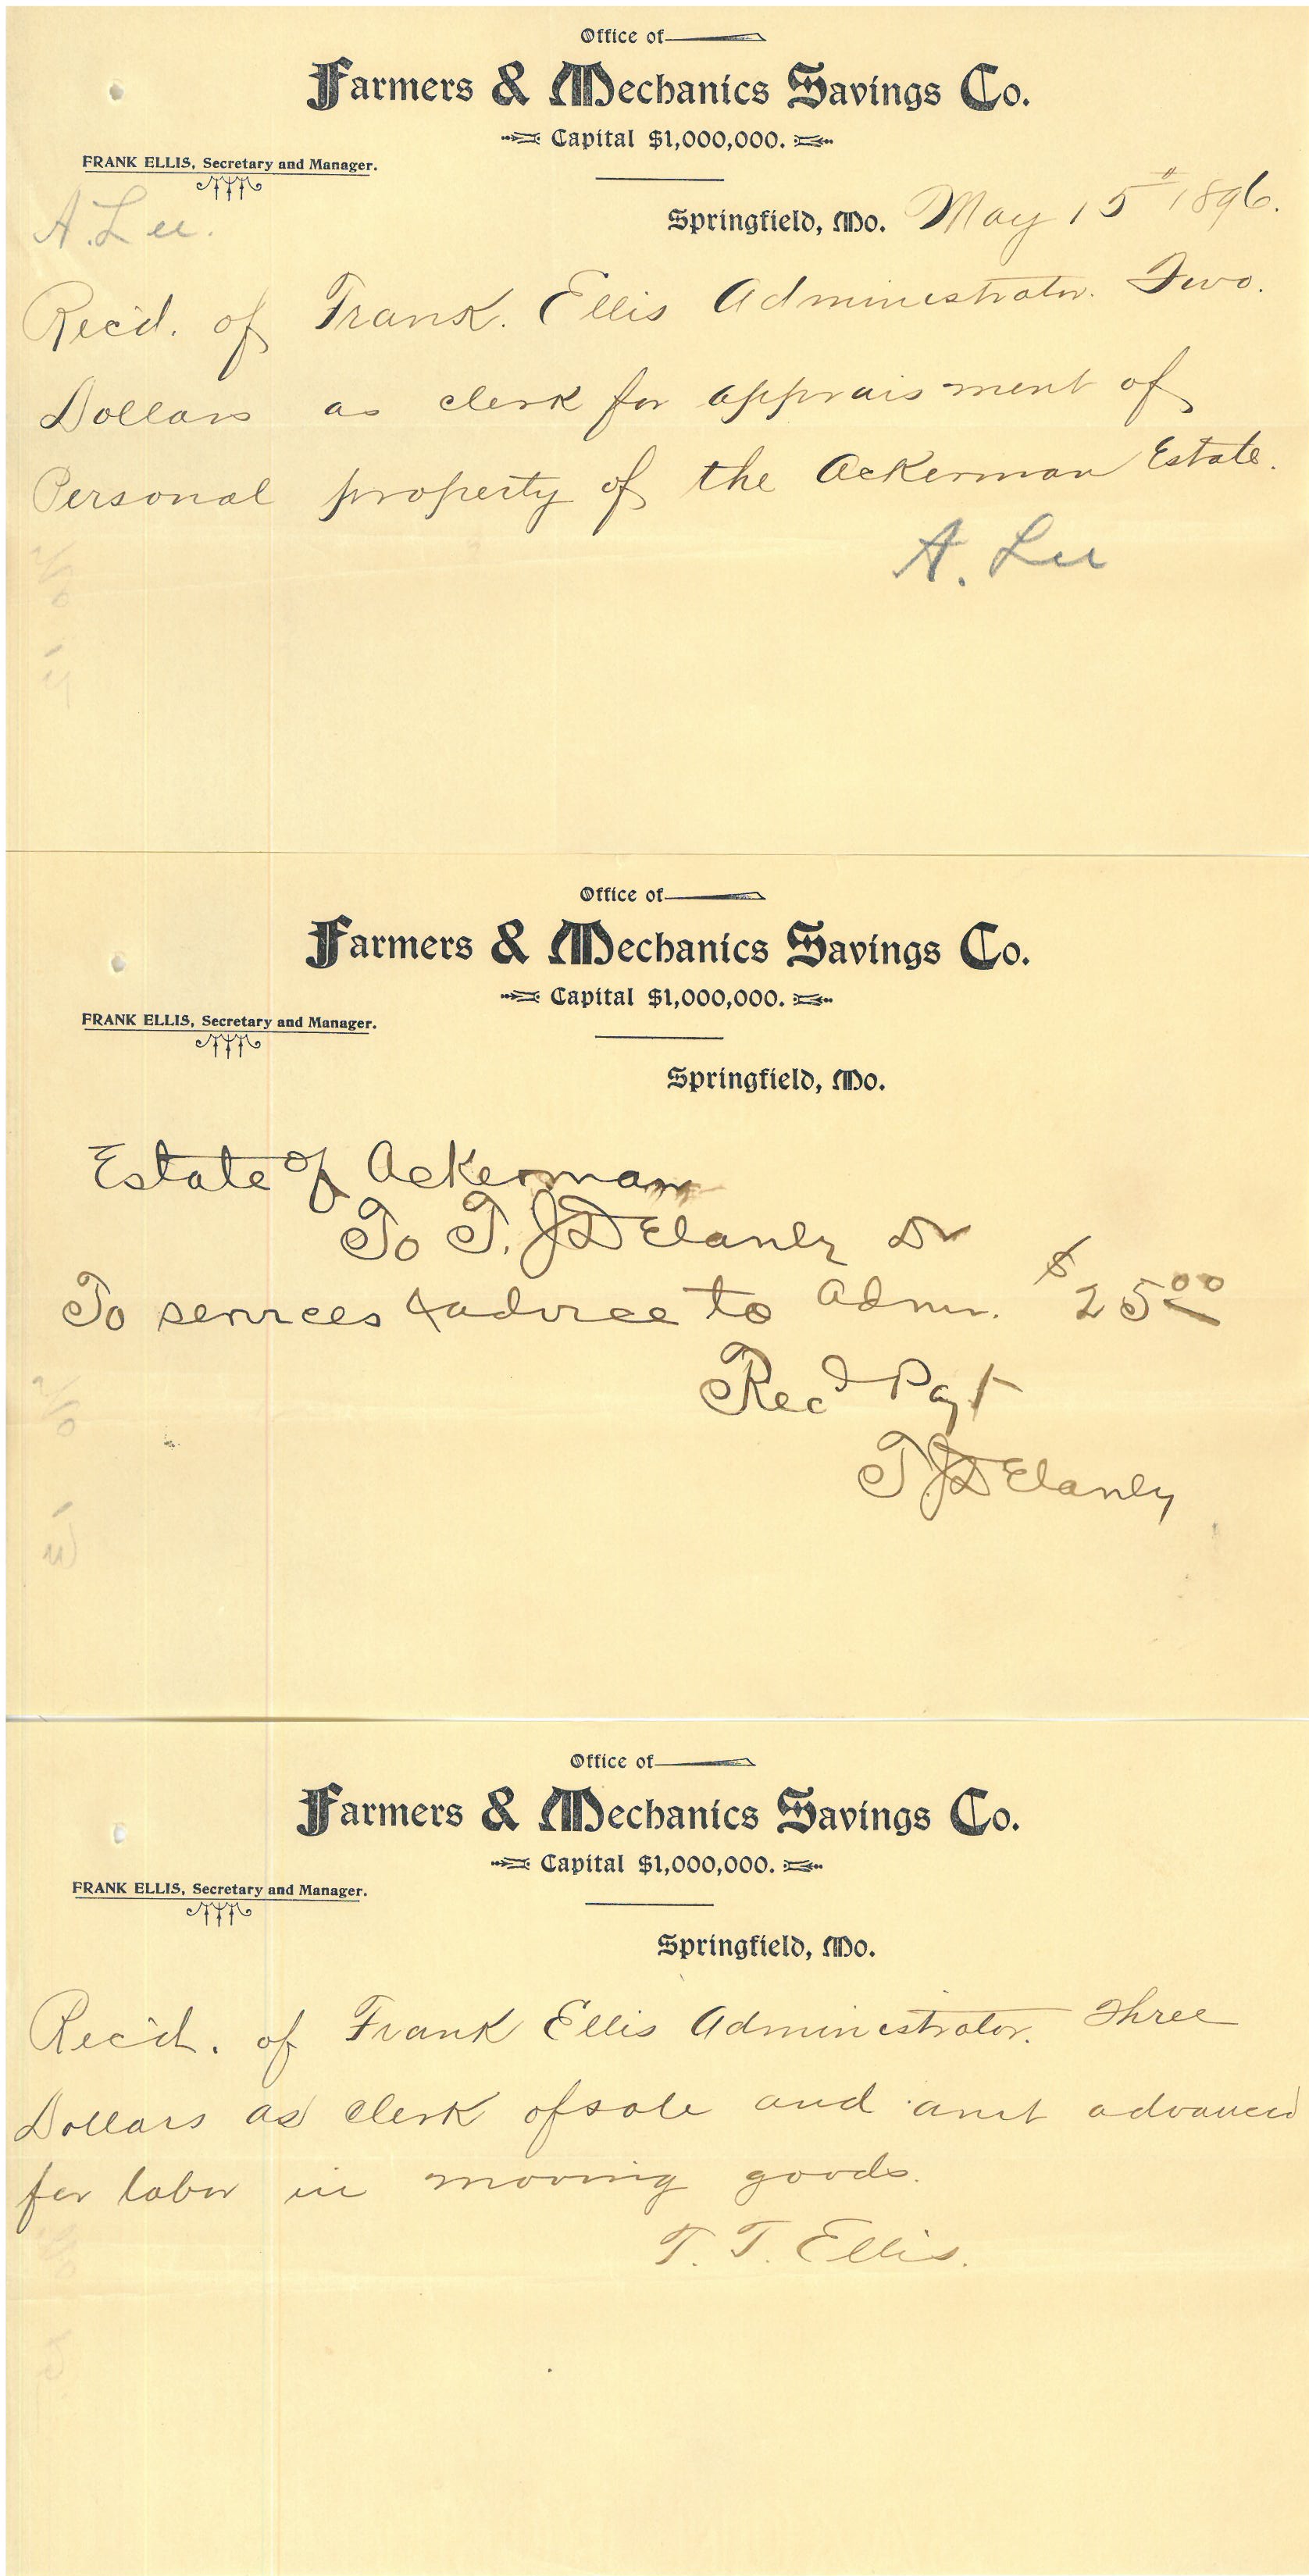 Office of
Farmers & Mechanics Savings Co.
Capital $1,000,000.
FRANK ELLIS, Secretary and Manager.
A. Lee.
Springfield, Mo. May 15th 1896.
Rec'd. of Frank. Ellis Administrator. Two.
Dollars as clerk for appraisment of
Personal property of the Ackerman Estate.
A. Lee
Office of
Farmers & Mechanics Savings Co.
Capital $1,000,000.
FRANK ELLIS, Secretary and Manager.
Springfield, Mo.
Estate of Ackerman
To T. J. Delaney Dr
To services & advice to Admr. $25.00
Recd Payt
T. J. Delaney
Office of
Farmers & Mechanics Savings Co.
Capital $1,000,000.
FRANK ELLIS, Secretary and Manager.
Springfield, Mo.
Rec'd. of Frank Ellis Administrator. Three
Dollars as Clerk of sale and amt advanced
for labor in moving goods.
T. T. Ellis.